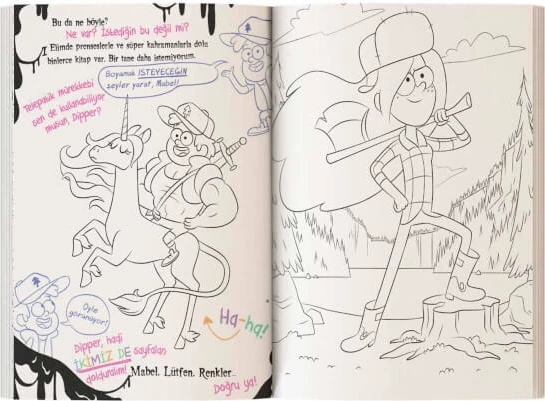 Bu da ne böyle?
Ne var? İstediğin bu değil mi?
Elimde prenseslerle ve süper kahramanlarla dolu
binlerce kitap var. Bir tane daha istemiyorum.
Boyamak İSTEYECEĞİN
şeyler yarat, Mabel!
Telepatik mürekkebi
sen de kullanabiliyor
musun, Dipper?
Öyle
görünüyor!
Ha-ha!
Dipper, hadi
İKİMİZ DE sayfaları
dolduralım!
Mabel. Lütfen. Renkler...
Doğru ya!